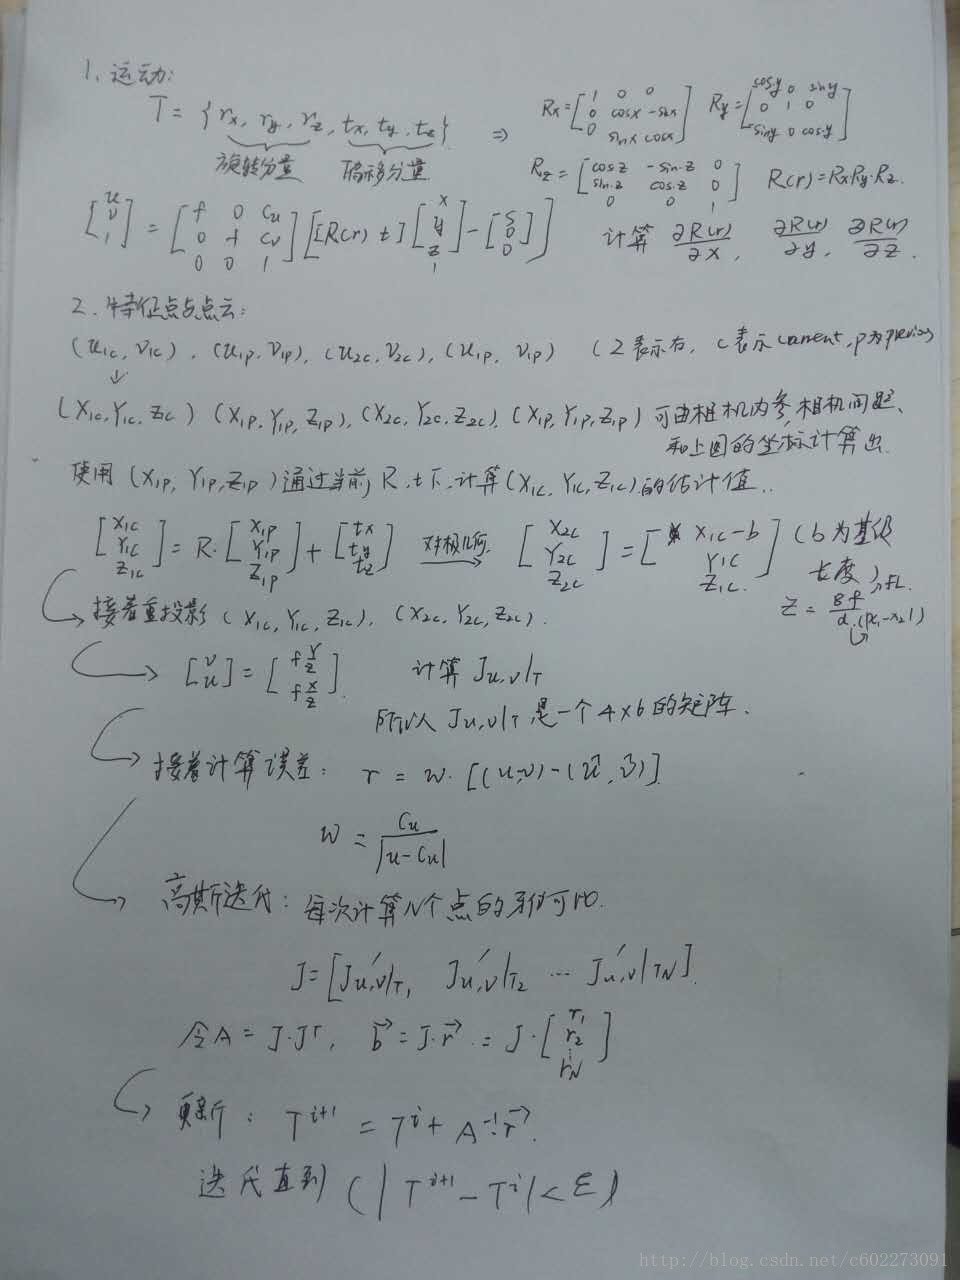 1、运动:
T = {rx, ry, rz, tx, ty, tz} ⇒ Rx = [1 0 0; 0 cosx -sinx; 0 sinx cosx] Ry = [cosy 0 siny; 0 1 0; siny 0 cosy]
旋转分量 偏移分量 Rz = [cosz -sinz 0; sinz cosz 0; 0 0 1] R(r) = Rx Ry·Rz.
[u; v; 1] = [f 0 Cu; 0 f Cv; 0 0 1] [[R(r) t] [x; y; z; 1] - [S; 0; 0]] 计算 ∂R(r)/∂x, ∂R(r)/∂y, ∂R(r)/∂z.
2、特征点与点云:
(U1c, V1c), (U1p, V1p), (U2c, V2c), (U1p, V1p) (2表示右, c表示current, p为previous
↓
(X1c, Y1c, Z1c) (X1p, Y1p, Z1p), (X2c, Y2c, Z2c), (X1p, Y1p, Z1p) 可由相机内参,相机间距、
和上图的坐标计算出.
使用 (X1p, Y1p, Z1p) 通过当前 R, t下, 计算 (X1c, Y1c, Z1c) 的估计值..
[X1c; Y1c; Z1c] = R·[X1p; Y1p; Z1p] + [tx; ty; tz] 对极几何 → [X2c; Y2c; Z2c] = [X1c-b; Y1c; Z1c] (b为基线
长度)
Z = Bf/d (|x1-x2|)
接着重投影 (X1c, Y1c, Z1c), (X2c, Y2c, Z2c).
[v; u] = [f Y/Z; f X/Z]. 计算 Ju,v|T
所以 Ju,v|T 是一个 4×6 的矩阵.
接着计算误差: r = w·[(u,v)-(ũ, ṽ)]
w = Cu/|u-Cu|
高斯迭代: 每次计算N个点的雅可比.
J = [Ju,v'|T1 Ju,v'|T2 ... Ju,v'|TN].
令A = J·Jᵀ, b⃗ = J·r⃗ = J·[r1; r2; ⋮; rN]
更新: Tⁱ⁺¹ = Tⁱ + A⁻¹·r⃗.
迭代直到 (|Tⁱ⁺¹ - Tⁱ| < ε)
http://blog.csdn.net/c602273091